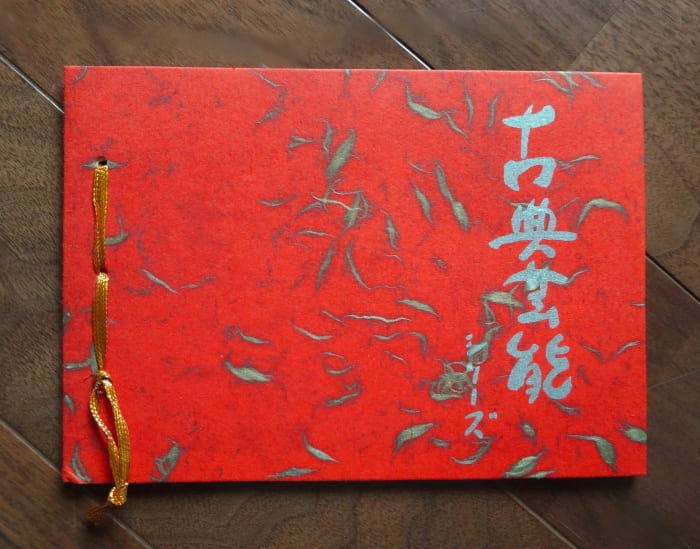 古典芸能
シリーズ